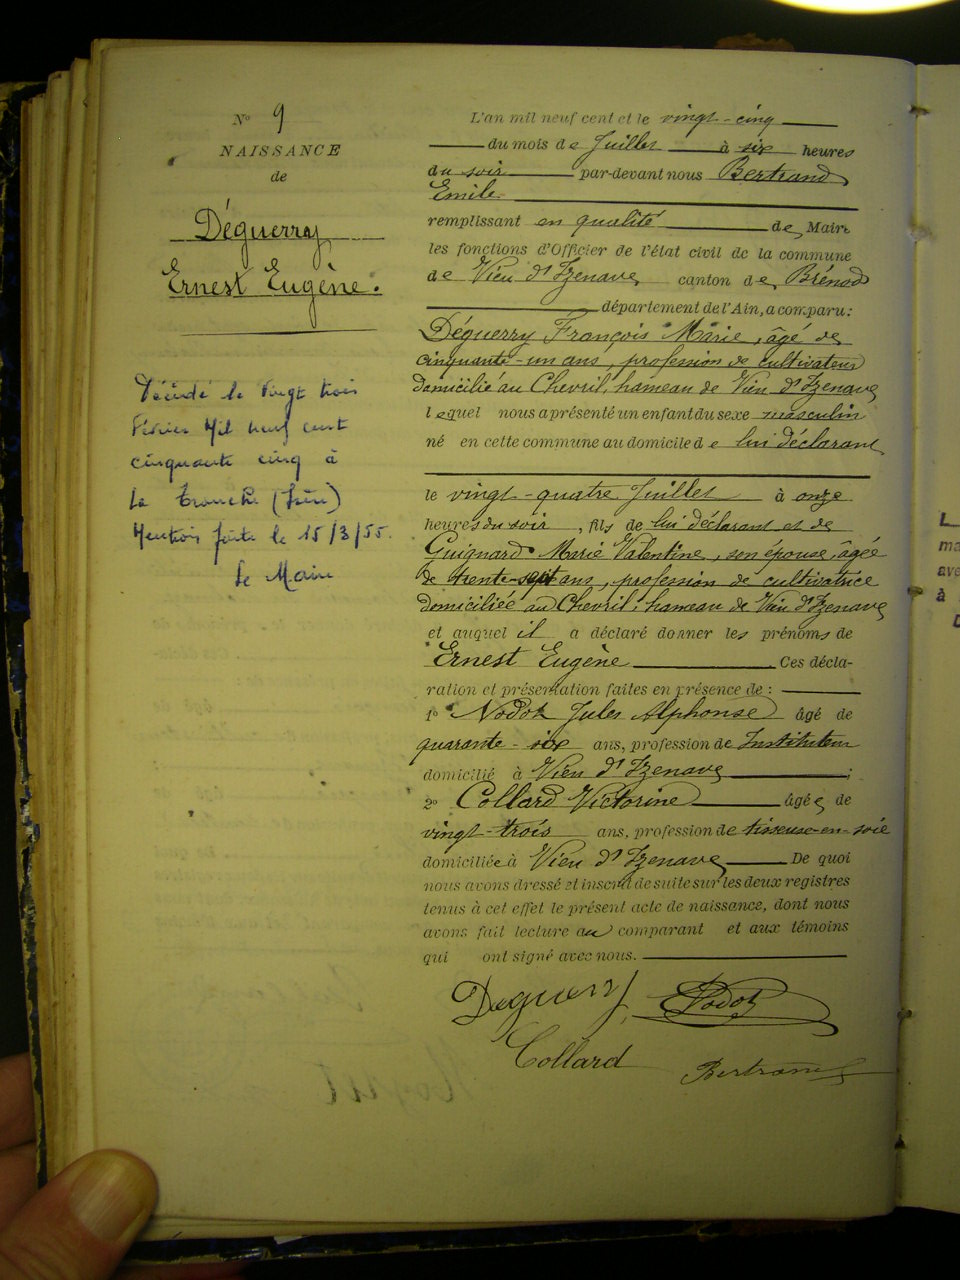 N° 9
NAISSANCE
de
Déguerry
Ernest Eugène.
Décédé le Vingt trois
Février Mil neuf cent
cinquante cinq à
La Tronche (Isère)
Mention faite le 15/3/55.
Le Maire
L'an mil neuf cent et le vingt-cinq
du mois de Juillet à six heures
du soir par-devant nous Bertrand
Emile
remplissant en qualité de Maire
les fonctions d'Officier de l'état civil de la commune
de Vieu d'Izenave canton de Brénod
département de l'Ain, a comparu :
Déguerry François Marie, âgé de
cinquante-un ans, profession de cultivateur
domicilié au Chevril, hameau de Vieu d'Izenave
lequel nous a présenté un enfant du sexe masculin
né en cette commune au domicile de lui déclarant
le vingt-quatre Juillet à onze
heures du soir, fils de lui déclarant et de
Guignard Marie Valentine, son épouse, âgée
de trente-sept ans, profession de cultivatrice
domiciliée au Chevril, hameau de Vieu d'Izenave
et auquel il a déclaré donner les prénoms de
Ernest Eugène Ces décla-
ration et présentation faites en présence de :
1° Nodot Jules Alphonse âgé de
quarante-six ans, profession de Instituteur
domicilié à Vieu d'Izenave ;
2° Collard Victorine âgée de
vingt-trois ans, profession de tisseuse-en-soie
domiciliée à Vieu d'Izenave De quoi
nous avons dressé et inscrit de suite sur les deux registres
tenus à cet effet le présent acte de naissance, dont nous
avons fait lecture au comparant et aux témoins
qui ont signé avec nous.
Deguerry Nodot
Collard Bertrand